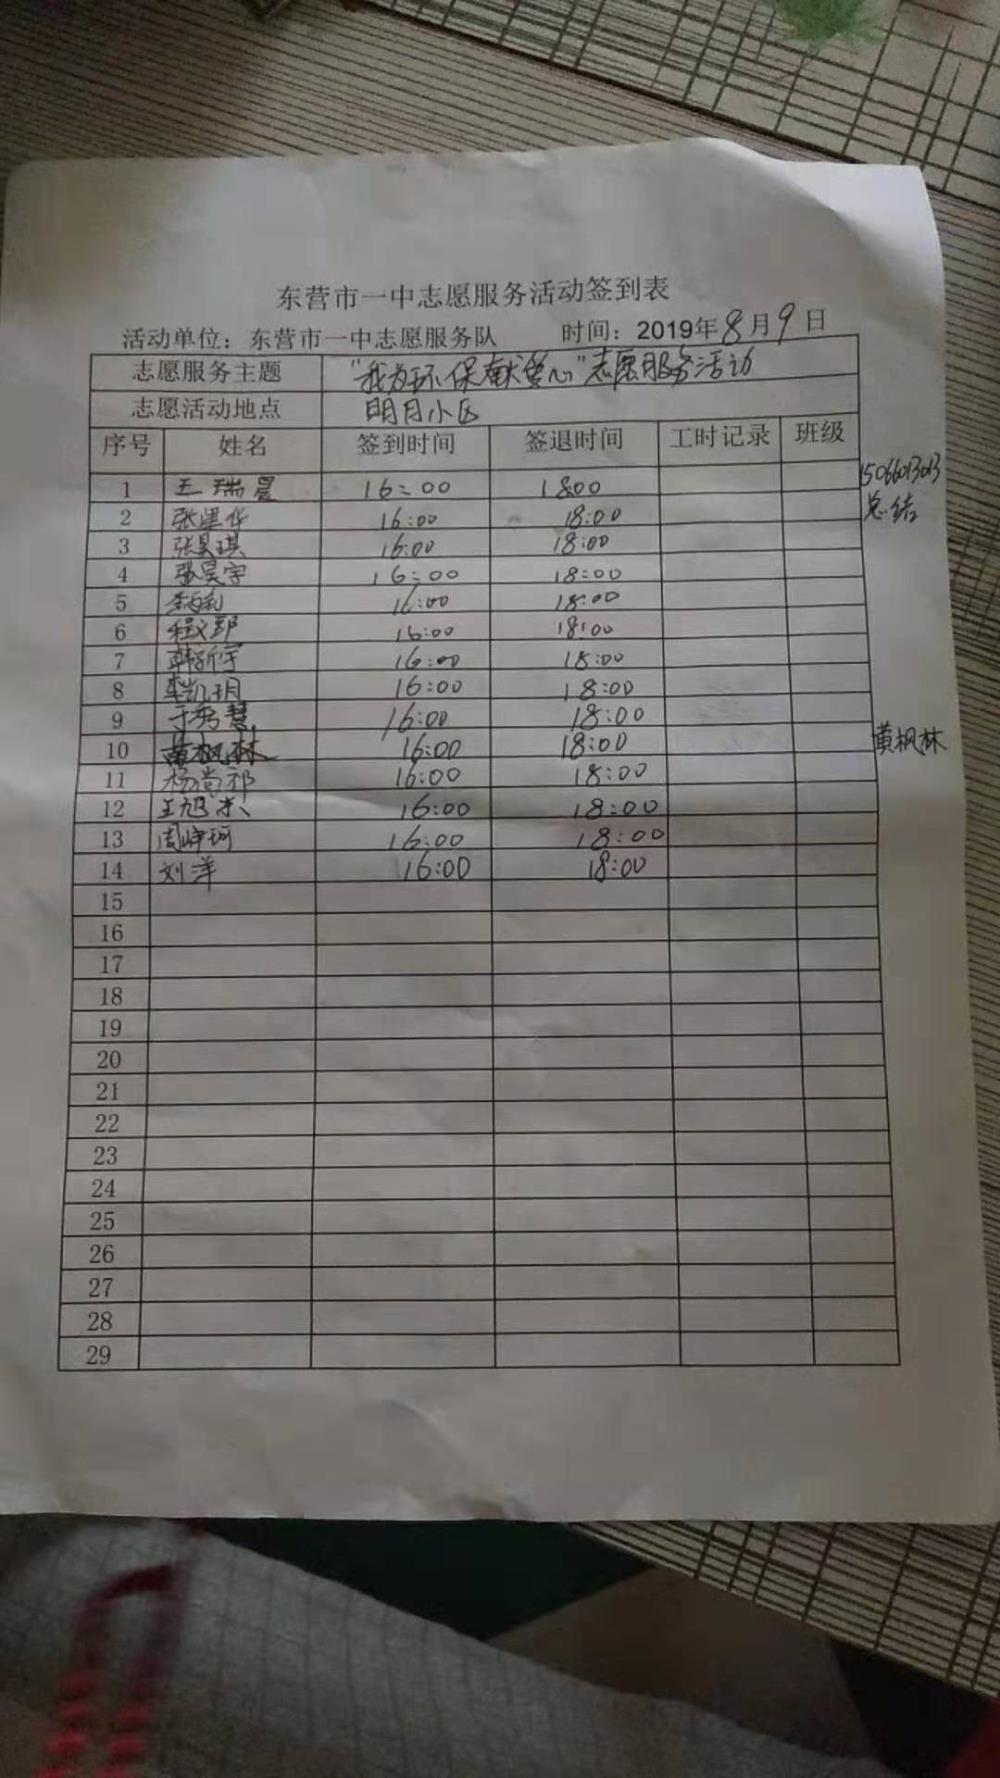 东营市一中志愿服务活动签到表
活动单位：东营市一中志愿服务队 时间：2019年8月9日
志愿服务主题 “我为环保献爱心”志愿服务活动
志愿活动地点 明月小区
序号 姓名 签到时间 签退时间 工时记录 班级
1 王瑞晨 16:00 18:00 15066013013
总结
2 张建华 16:00 18:00
3 张昊琪 16:00 18:00
4 张昊宇 16:00 18:00
5 16:00 18:00
6 程文郡 16:00 18:00
7 韩新宇 16:00 18:00
8 凯玥 16:00 18:00
9 于秀慧 16:00 18:00
10 黄枫林 16:00 18:00 黄枫林
11 杨尚祁 16:00 18:00
12 王旭杰 16:00 18:00
13 周峥珂 16:00 18:00
14 刘洋 16:00 18:00
15
16
17
18
19
20
21
22
23
24
25
26
27
28
29